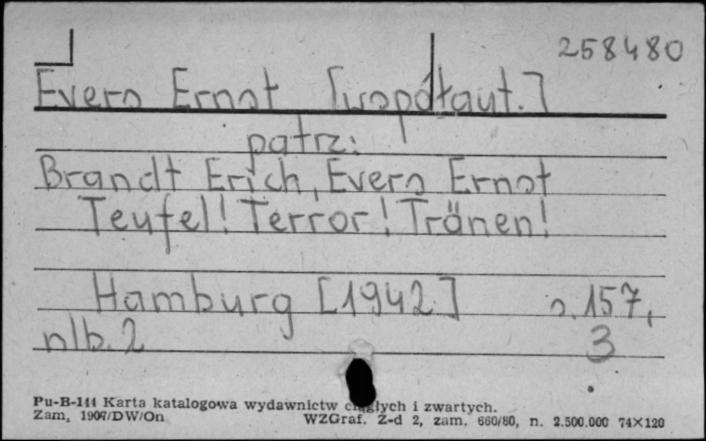 258480
Evers Ernst [współaut.]
patrz:
Brandt Erich, Evers Ernst
Teufel! Terror! Tränen!
Hamburg [1942] s. 157,
nlb. 2 3
Pu-B-144 Karta katalogowa wydawnictw ciągłych i zwartych.
Zam. 1907/DW/On WZGraf. Z-d 2, zam. 660/80, n. 2.500.000 74×120